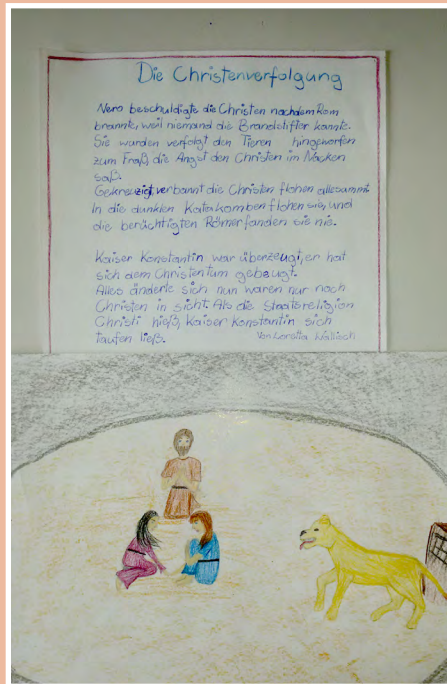 Die Christenverfolgung
Nero beschuldigte die Christen nachdem Rom
brannte, weil niemand die Brandstifter kannte.
Sie wurden verfolgt den Tieren hingeworfen
zum Fraß, die Angst den Christen im Nacken
saß.
Gekreuzigt, verbannt die Christen flohen allesammt
In die dunklen Katakomben flohen sie, und
die berüchtigten Römer fanden sie nie.
Kaiser Konstantin war überzeugt, er hat
sich dem Christentum gebeugt.
Alles änderte sich nun waren nur noch
Christen in sicht. Als die Staatsreligion
Christi hieß, Kaiser Konstantin sich
taufen ließ.
Von Loretta Wallisch